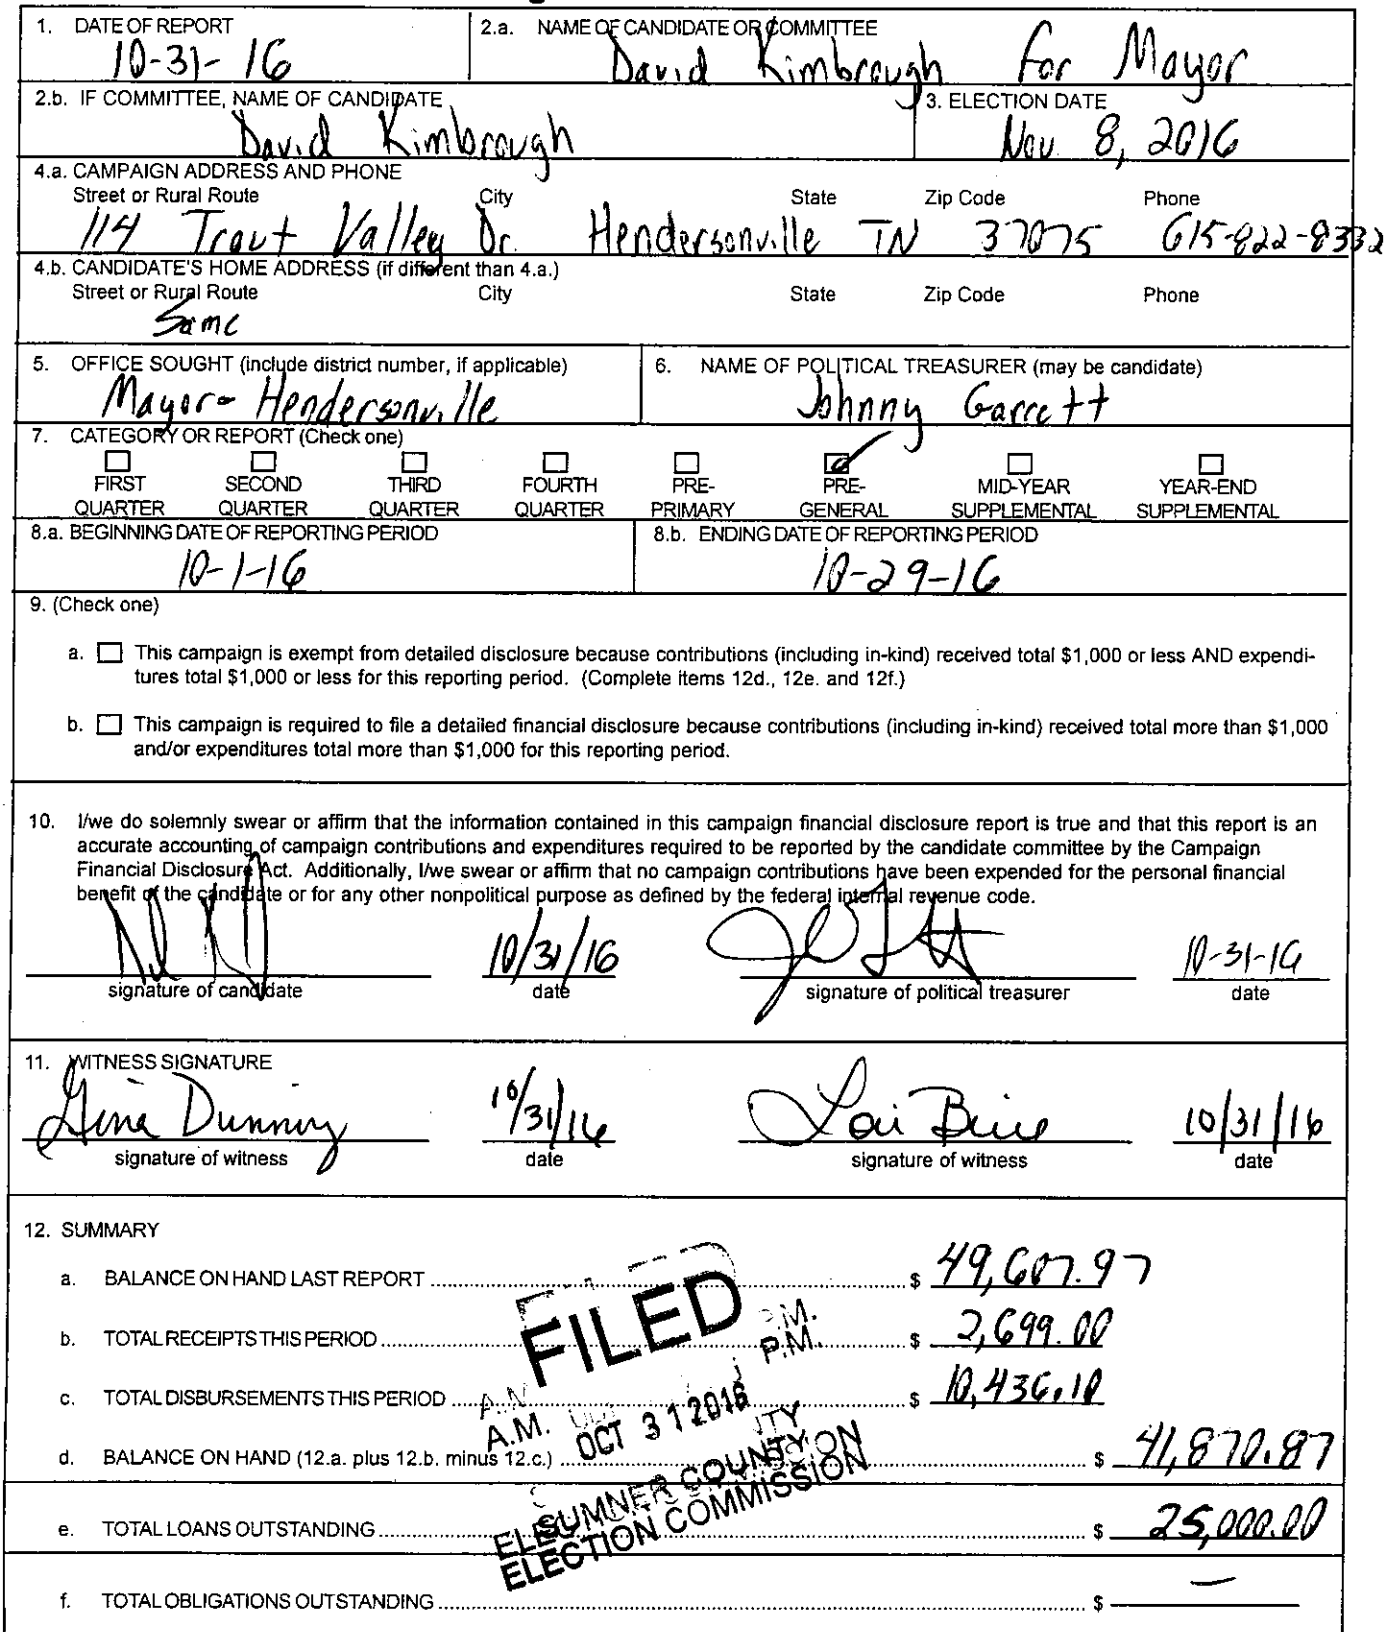 1. DATE OF REPORT
10-31-16
2.a. NAME OF CANDIDATE OR COMMITTEE
David Kimbrough for Mayor
2.b. IF COMMITTEE, NAME OF CANDIDATE
David Kimbrough
3. ELECTION DATE
Nov. 8, 2016
4.a. CAMPAIGN ADDRESS AND PHONE
Street or Rural Route City State Zip Code Phone
114 Trout Valley Dr. Hendersonville TN 37075 615-822-8332
4.b. CANDIDATE'S HOME ADDRESS (if different than 4.a.)
Street or Rural Route City State Zip Code Phone
Same
5. OFFICE SOUGHT (include district number, if applicable)
Mayor - Hendersonville
6. NAME OF POLITICAL TREASURER (may be candidate)
Johnny Garrett
7. CATEGORY OR REPORT (Check one)
FIRST SECOND THIRD FOURTH PRE- PRE- MID-YEAR YEAR-END
QUARTER QUARTER QUARTER QUARTER PRIMARY GENERAL SUPPLEMENTAL SUPPLEMENTAL
8.a. BEGINNING DATE OF REPORTING PERIOD
10-1-16
8.b. ENDING DATE OF REPORTING PERIOD
10-29-16
9. (Check one)
a. This campaign is exempt from detailed disclosure because contributions (including in-kind) received total $1,000 or less AND expendi-
tures total $1,000 or less for this reporting period. (Complete items 12d., 12e. and 12f.)
b. This campaign is required to file a detailed financial disclosure because contributions (including in-kind) received total more than $1,000
and/or expenditures total more than $1,000 for this reporting period.
10. I/we do solemnly swear or affirm that the information contained in this campaign financial disclosure report is true and that this report is an
accurate accounting of campaign contributions and expenditures required to be reported by the candidate committee by the Campaign
Financial Disclosure Act. Additionally, I/we swear or affirm that no campaign contributions have been expended for the personal financial
benefit of the candidate or for any other nonpolitical purpose as defined by the federal internal revenue code.
10/31/16 10-31-16
signature of candidate date signature of political treasurer date
11. WITNESS SIGNATURE
Gina Dunning 10/31/16 10/31/16
signature of witness date signature of witness date
12. SUMMARY
a. BALANCE ON HAND LAST REPORT $ 49,607.97
b. TOTAL RECEIPTS THIS PERIOD $ 2,699.00
c. TOTAL DISBURSEMENTS THIS PERIOD $ 10,436.10
d. BALANCE ON HAND (12.a. plus 12.b. minus 12.c.) $ 41,870.87
e. TOTAL LOANS OUTSTANDING $ 25,000.00
f. TOTAL OBLIGATIONS OUTSTANDING $ —
FILED
A.M. P.M.
OCT 31 2016
SUMNER COUNTY
ELECTION COMMISSION